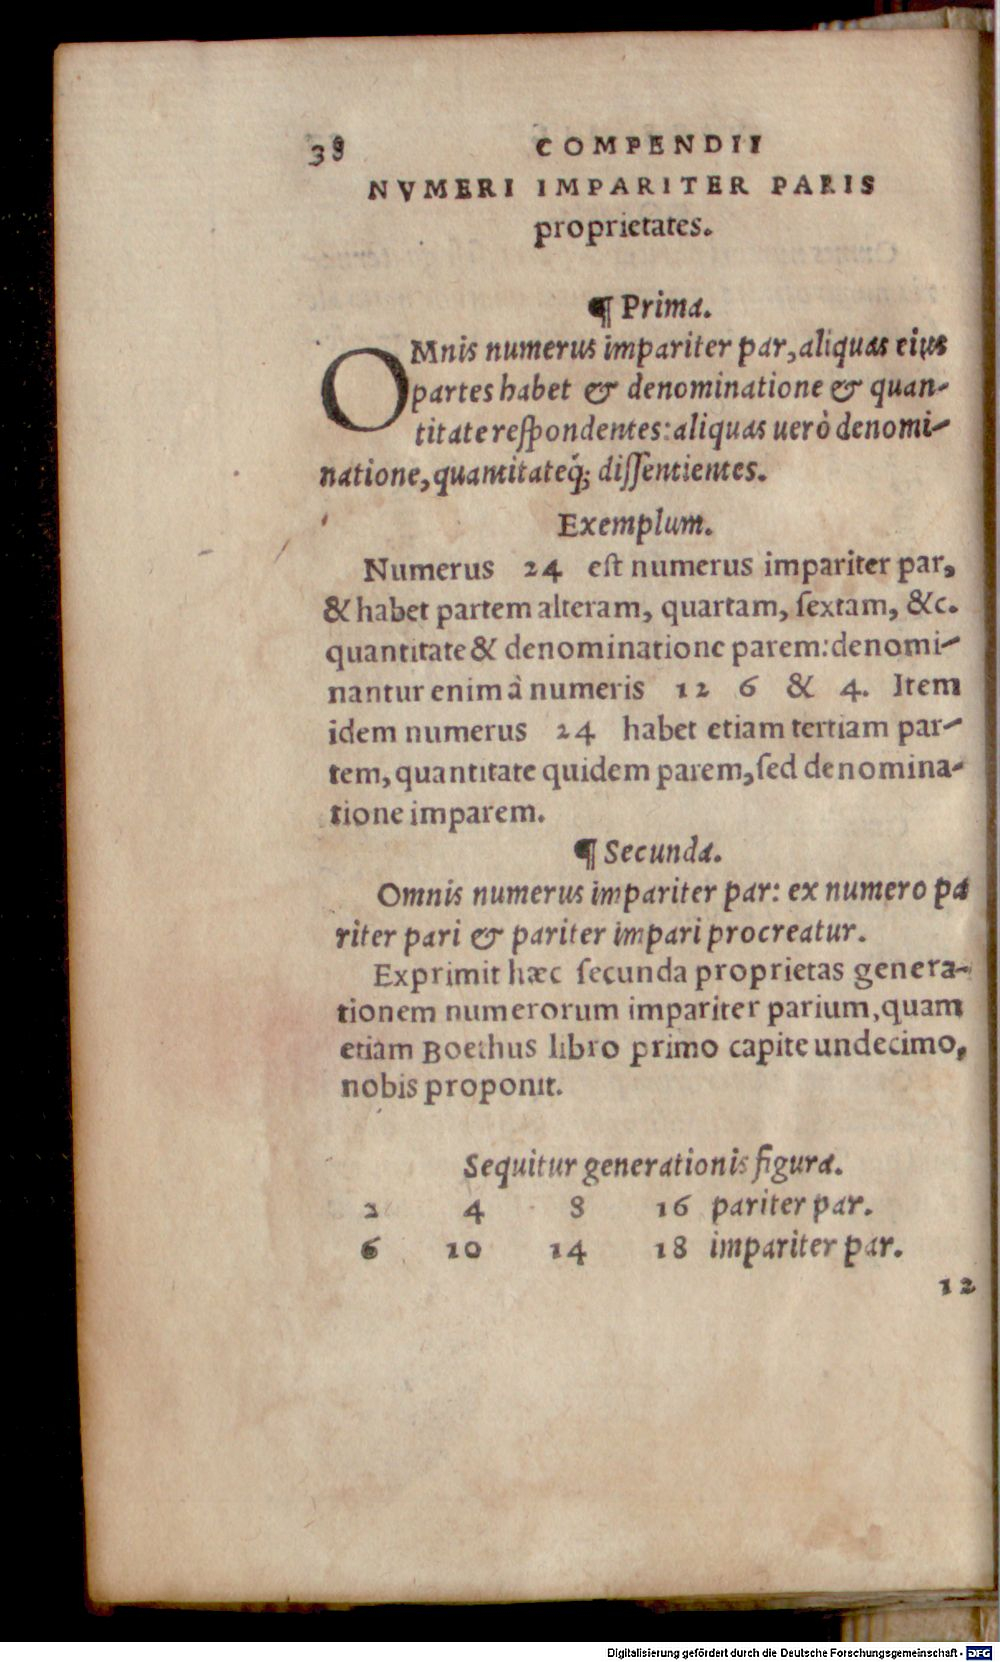 38 COMPENDII
NVMERI IMPARITER PARIS
proprietates.
¶ Prima.
OMnis numerus impariter par, aliquas eius
partes habet & denominatione & quan-
titate reſpondentes: aliquas uerò denomi-
natione, quantitateq́; diſſentientes.
Exemplum.
Numerus 24 eſt numerus impariter par,
& habet partem alteram, quartam, ſextam, &c.
quantitate & denominatione parem: denomi-
nantur enim à numeris 12 6 & 4. Item
idem numerus 24 habet etiam tertiam par-
tem, quantitate quidem parem, ſed denomina-
tione imparem.
¶ Secunda.
Omnis numerus impariter par: ex numero pa
riter pari & pariter impari procreatur.
Exprimit hæc ſecunda proprietas genera-
tionem numerorum impariter parium, quam
etiam Boethus libro primo capite undecimo,
nobis proponit.
Sequitur generationis figura.
2 4 8 16 pariter par.
6 10 14 18 impariter par.
12
Digitalisierung gefördert durch die Deutsche Forschungsgemeinschaft - DFG